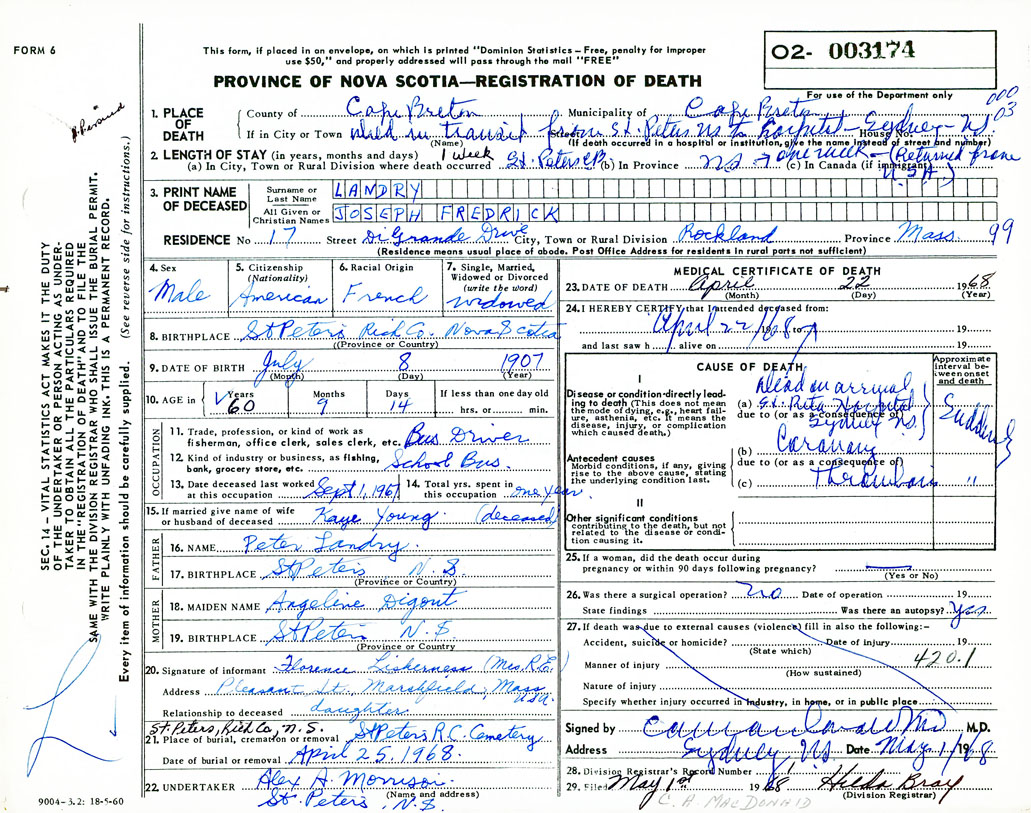 FORM 6
This form, if placed in an envelope, on which is printed "Dominion Statistics – Free, penalty for improper
use $50," and properly addressed will pass through the mail "FREE"
PROVINCE OF NOVA SCOTIA—REGISTRATION OF DEATH
02- 003174
For use of the Department only
000
03
SEC. 14 – VITAL STATISTICS ACT MAKES IT THE DUTY
OF THE UNDERTAKER OR PERSON ACTING AS UNDER-
TAKER TO OBTAIN ALL THE PARTICULARS REQUIRED
IN THE "REGISTRATION OF DEATH" AND TO FILE THE
SAME WITH THE DIVISION REGISTRAR WHO SHALL ISSUE THE BURIAL PERMIT.
WRITE PLAINLY WITH UNFADING INK. THIS IS A PERMANENT RECORD.
Every item of information should be carefully supplied. (See reverse side for instructions.)
1. PLACE OF DEATH County of Cape Breton Municipality of Cape Breton
If in City or Town died in transit from St. Peters NS to hospital - Sydney - NS. House No.
(Name) (If death occurred in a hospital or institution, give the name instead of street and number)
2. LENGTH OF STAY (in years, months and days) 1 week
(a) In City, Town or Rural Division where death occurred St. Peters CB (b) In Province NS → one week - (c) In Canada (if immigrant) (Returned from U.S.A)
3. PRINT NAME OF DECEASED Surname or Last Name LANDRY
All Given or Christian Names JOSEPH FREDRICK
RESIDENCE No 17 Street DiGrande Drive City, Town or Rural Division Rockland Province Mass. 99
(Residence means usual place of abode. Post Office Address for residents in rural parts not sufficient)
4. Sex Male
5. Citizenship (Nationality) American
6. Racial Origin French
7. Single, Married, Widowed or Divorced (write the word) widowed
8. BIRTHPLACE St Peters Rich Co. Nova Scotia
(Province or Country)
9. DATE OF BIRTH July 8 1907
(Month) (Day) (Year)
10. AGE in Years 60 Months 9 Days 14 If less than one day old hrs. or min.
OCCUPATION
11. Trade, profession, or kind of work as fisherman, office clerk, sales clerk, etc. Bus Driver
12. Kind of industry or business, as fishing, bank, grocery store, etc. School Bus.
13. Date deceased last worked at this occupation Sept 1, 1967 14. Total yrs. spent in this occupation one year.
15. If married give name of wife or husband of deceased Kaye Young. (deceased)
FATHER
16. NAME Peter Landry.
17. BIRTHPLACE St Peters N. S
(Province or Country)
MOTHER
18. MAIDEN NAME Angeline Digout
19. BIRTHPLACE St Peters N. S.
(Province or Country)
20. Signature of informant Florence Liskerness (Mrs. R.E.)
Address Pleasant St. Marshfield, Mass USA.
Relationship to deceased daughter
St. Peters, Rich Co, N.S.
21. Place of burial, cremation or removal St Peters R.C. Cemetery
Date of burial or removal April 25, 1968.
22. UNDERTAKER Alex A. Morrison.
(Name and address)
St. Peters, N.S.
9004–3.2: 18-5-60
MEDICAL CERTIFICATE OF DEATH
23. DATE OF DEATH April 22 1968
(Month) (Day) (Year)
24. I HEREBY CERTIFY that I attended deceased from:
April 22 1968 to 19
and last saw h alive on 19
CAUSE OF DEATH
Approximate interval between onset and death
I
Disease or condition directly leading to death (This does not mean the mode of dying, e.g., heart failure, asthenia, etc. It means the disease, injury, or complication which caused death.)
(a) Dead on arrival St. Rita Hospital Sydney NS. Suddenly
due to (or as a consequence of)
Antecedent causes
Morbid conditions, if any, giving rise to the above cause, stating the underlying condition last.
(b) Coronary
due to (or as a consequence of)
(c) Thrombosis "
II
Other significant conditions
contributing to the death, but not related to the disease or condition causing it.
25. If a woman, did the death occur during pregnancy or within 90 days following pregnancy?
(Yes or No)
26. Was there a surgical operation? no Date of operation 19
State findings Was there an autopsy? Yes
27. If death was due to external causes (violence) fill in also the following:–
Accident, suicide or homicide? Date of injury 19
(State which) 420.1
Manner of injury
(How sustained)
Nature of injury
Specify whether injury occurred in industry, in home, or in public place
Signed by M.D.
Address Sydney NS Date May 1/1968
28. Division Registrar's Record Number 1
29. Filed May 1st 1968 Hilda Bray
(Division Registrar)
C. A. MACDONALD